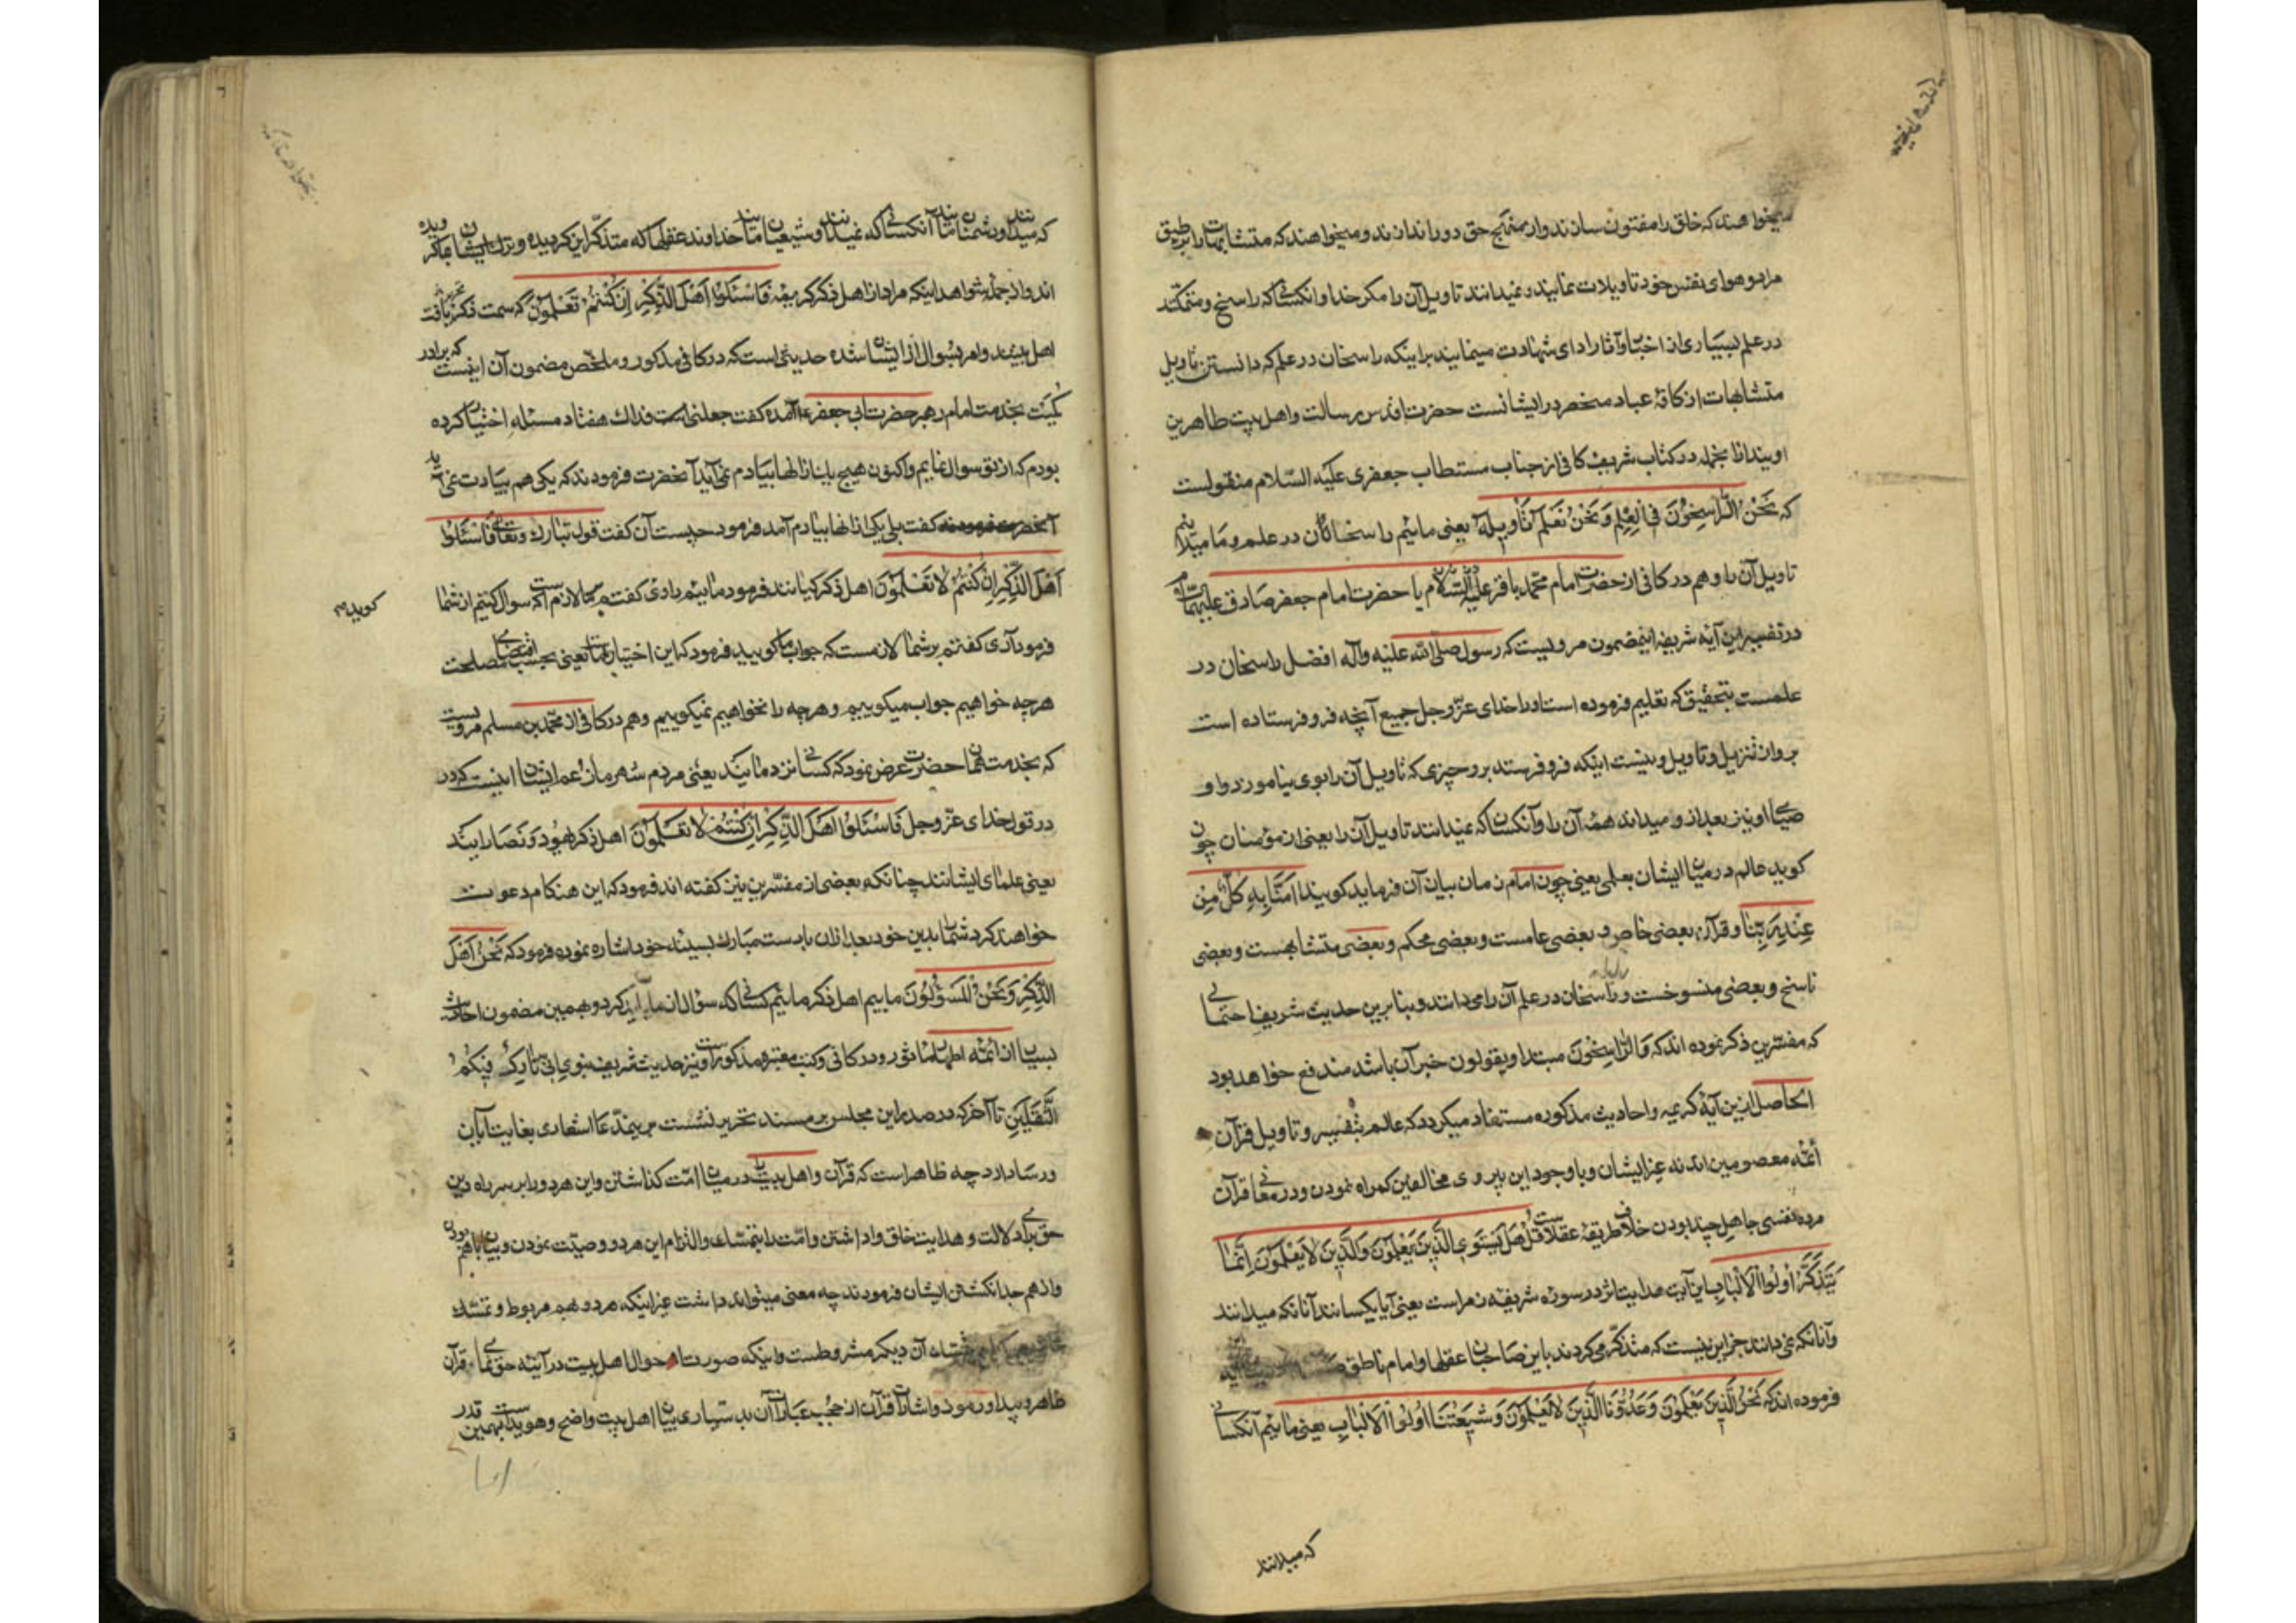 میخواهند که خلق را مفتون سازند و از منهج حق دور اندازند و میخواهند که متشابهات را بر طبق
هوای نفس خود تاویلات نمایند و نمیدانند تاویل آن را مکر خدا و آنکسانیکه راسخ و متمکنند
در علم بسیاری از اخبار و آثار ادای شهادت مینمایند بر اینکه راسخان در علم که دانستن تاویل
متشابهات از کافهٔ عباد منحصر در ایشانست حضرت اقدس رسالت و اهل بیت طاهرین
اویند از انجمله در کتاب شریف کافی از جناب مستطاب جعفری علیه السلام منقولست
که نَحْنُ الرَّاسِخُونَ فِی الْعِلْمِ وَنَحْنُ نَعْلَمُ تَأوِیلَهُ یعنی مائیم راسخان در علم و ما میدانیم
تاویل آن را و هم در کافی از حضرت امام محمد باقر علیه السلام یا حضرت امام جعفر صادق علیهما
در تفسیر این آیهٔ شریفه اینمضمون مرویست که رسول صلی الله علیه وآله افضل راسخان در
علمست بتحقیق که تعلیم فرموده است او را خدای عزّ وجل جمیع آنچه فرو فرستاده است
بر او از تنزیل و تاویل و نیست اینکه فرو فرستد بر او چیزی که تاویل آن را بوی نیاموزد و او
اوصیای او نیز بعد از او میداند همهٔ آن را و آنکسانیکه نمیدانند تاویل آن را یعنی از مؤمنان چون
کوید عالم در میان ایشان بعلمی یعنی چون امام زمان بیان آن فرماید کویند امَنَّا بِهِ کُلٌّ مِن
عِنْدِ رَبِّنَا و قرآن بعضی خاص و بعضی عامست و بعضی محکم و بعضی متشابهست و بعضی
ناسخ و بعضی منسوخست و راسخان در علم آن را می دانند و بنابرین حدیث شریف احتمالی
که مفسرین ذکر نموده اند که وَالرَّاسِخُونَ مبتدا و یقولون خبر آن باشد مندفع خواهد بود
الحاصل ازین آیهٔ کریمه و احادیث مذکوره مستفاد میکردد که عالم بتفسیر و تاویل قرآن
أئمّه معصومین اند نه غیر ایشان و با وجود این پیروی مخالفین کمراه نمودن و در معانی قرآن
جاهل چند بودن خلاف طریقهٔ عقلاست قُلْ هَلْ یَسْتَوِی الَّذِینَ یَعْلَمُونَ وَالَّذِینَ لَا یَعْلَمُونَ إِنَّمَا
یَتَذَکَّرُ اُولُوا الْاَلْبَابِ این آیت هدایت اثر در سورهٔ شریفه زمر است یعنی آیا یکسانند آنانکه میدانند
و آنانکه نمی دانند جز این نیست که متذکر می کردند باین صاحبان عقلها و امام ناطق
فرموده اند که نَحْنُ الَّذِینَ یَعْلَمُونَ وَعَدُوُّنَا الَّذِینَ لَا یَعْلَمُونَ وَشِیعَتُنَا اُولُوا الْاَلْبَابِ یعنی مائیم آنکسانی
که میدانند
که میدانند و دشمنان ما آنکسانیکه نمیدانند و شیعیان ما خداوند عقلها که متذکر این کردیده و ترک ایشان
اند و از جمله شواهد اینکه مراد از اهل ذکر کریمه فَاسْئَلُوا اَهْلَ الذِّکْرِ اِنْ کُنْتُمْ تَعْلَمُونَ که سمت ذکر یافت
اهل بیتند و امر بسوال از ایشان شده حدیثی است که در کافی مذکور و ملخص مضمون آن اینست که برادر
کُمَیْت بخدمت امام رهبر حضرت ابی جعفر آمده کفت جعلنی الله فداك هفتاد مسئله اختیار کرده
بودم که از تو سوال نمایم و اکنون هیچ یك از انها بیادم نمی آید آنحضرت فرمودند که یکی هم بیادت نمی آید
کفت بلی یکی از انها بیادم آمد فرمود چیست آن کفت قول تبارك وتعالی فَاسْئَلُوا
اَهْلَ الذِّکْرِ اِنْ کُنْتُمْ لَا تَعْلَمُونَ اهل ذکر کیانند فرمود مائیم راوی کفت بر ما لازم است که سوال کنیم از شما
کوید
فرمود آری کفتم بر شما لازمست که جواب ما کویید فرمود که این اختیار با ماست یعنی بحسب اقتضای مصلحت
هرچه خواهیم جواب میکوییم و هرچه را نخواهیم نمیکوییم و هم در کافی از محمد بن مسلم مرویست
که بخدمت همان حضرت عرض نمود که کسانی نزد مایند یعنی مردم شهر ما زعم ایشان اینست که در
در قول خدای عزّ وجل فَاسْئَلُوا اَهْلَ الذِّکْرِ اِنْ کُنْتُمْ لَا تَعْلَمُونَ اهل ذکر یهود و نصارایند
یعنی علمای ایشانند چنانکه بعضی از مفسرین نیز کفته اند فرمود که این هنکام دعوت
خواهند کرد شما را بدین خود بعد از ان با دست مبارك بسینهٔ خود اشاره نموده فرمود که نَحْنُ اَهْلُ
الذِّکْرِ وَنَحْنُ الْمَسْؤُلُونَ ماییم اهل ذکر مائیم کسانیکه سؤال از ما باید کرد و بهمین مضمون احادیث
بسیار از ائمّه اطهار ماثور و در کافی و کتب معتبره مذکور است و نیز حدیث شریف نبوی اِنِّی تَارِکٌ فِیکُمُ
الثَّقَلَیْنِ تا آخر که در صدر این مجلس بر مسند تحریر نشست برینمدّعا اشعاری بغایت آبان
و رسا دارد چه ظاهر است که قرآن و اهل بیت را در میان امّت کذاشتن و این هر دو را بر سر راه دین
حق برای دلالت و هدایت خلق واداشتن و امّت را بتمسّك والتزام این هر دو وصیّت نمودن و
و از هم جدا نکشتن ایشان فرمودند چه معنی میتواند داشت غیر اینکه هر دو بهم مربوط و تمسّك
آن دیکر مشروطست و اینکه صورت احوال اهل بیت در آیینه حق نمای قرآن
ظاهر و پیدا و رموز و اشارات قرآن از حجب عبارات آن بدستیاری بیان اهل بیت واضح و هویداست بهمین قدر